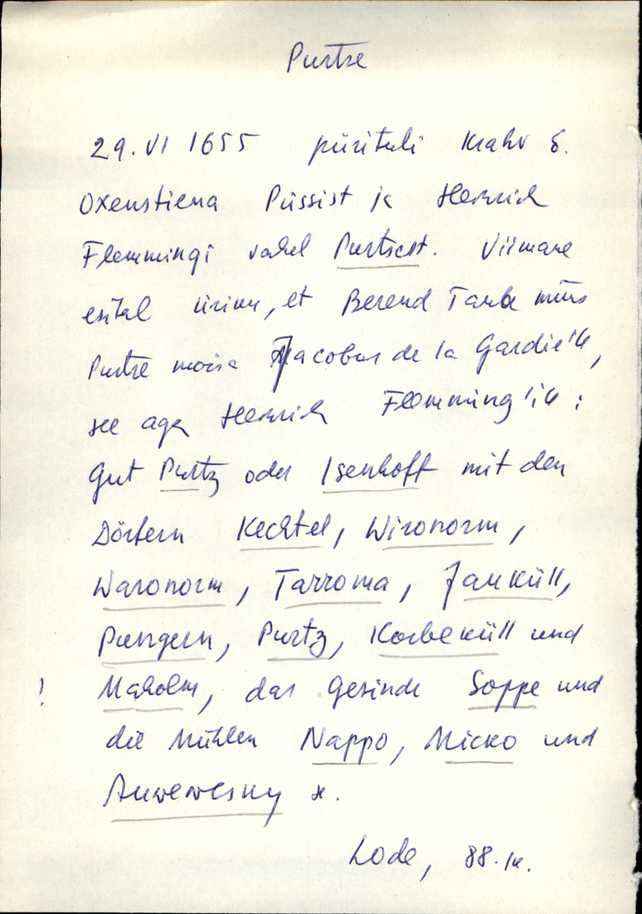 Purtse
29. VI 1655 püsituli krahv G.
Oxenstierna Püssist ja Heinrich
Flemmingi vahel Purtsest. Viimane
esital üriku, et Berend Taube müüs
Purtse mõisa Jacobus de la Gardie'le,
see aga Heinrich Flemming'ile:
Gut Purtz oder Isenhoff mit den
Dörfern Kechtel, Wironorm,
Waronorm, Tarroma, Janküll,
Pungern, Purtz, Korbeküll und
! Maholm, das Gesinde Soppe und
die Mühlen Nappo, Micko und
Auwewesky
Lode, 88. lk.